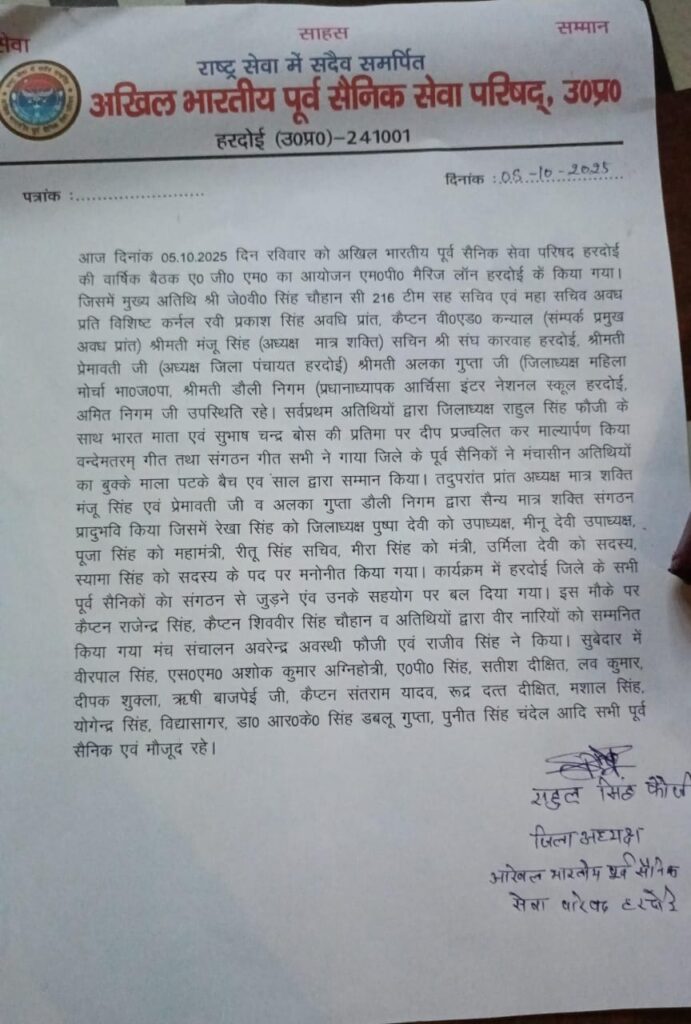 सेवा
साहस
सम्मान
राष्ट्र सेवा में सदैव समर्पित
अखिल भारतीय पूर्व सैनिक सेवा परिषद्, उ0प्र0
हरदोई (उ0प्र0)-241001
पत्रांक :.......................
दिनांक :05-10-2025
आज दिनांक 05.10.2025 दिन रविवार को अखिल भारतीय पूर्व सैनिक सेवा परिषद हरदोई
की वार्षिक बैठक ए० जी० एम० का आयोजन एम०पी० मैरिज लॉन हरदोई कें किया गया।
जिसमें मुख्य अतिथि श्री जे०वी० सिंह चौहान सी 216 टीम सह सचिव एवं महा सचिव अवध
प्रति विशिष्ट कर्नल रवी प्रकाश सिंह अवधि प्रांत, कैप्टन वी०एड० कन्याल (संम्पर्क प्रमुख
अवध प्रांत) श्रीमती मंजू सिंह (अध्यक्ष मात्र शक्ति) सचिन श्री संघ कारवाह हरदोई, श्रीमती
प्रेमावती जी (अध्यक्ष जिला पंचायत हरदोई) श्रीमती अलका गुप्ता जी (जिलाध्यक्ष महिला
मोर्चा भा०ज०पा, श्रीमती डौली निगम (प्रधानाध्यापक आर्चिसा इंटर नेशनल स्कूल हरदोई,
अमित निगम जी उपस्थिति रहे। सर्वप्रथम अतिथियों द्वारा जिलाध्यक्ष राहुल सिंह फौजी के
साथ भारत माता एवं सुभाष चन्द्र बोस की प्रतिमा पर दीप प्रज्वलित कर माल्यार्पण किया
वन्देमतरम् गीत तथा संगठन गीत सभी ने गाया जिले के पूर्व सैनिकों ने मंचासीन अतिथियों
का बुक्के माला पटके बैच एव साल द्वारा सम्मान किया। तदुपरांत प्रांत अध्यक्ष मात्र शक्ति
मंजू सिंह एवं प्रेमावती जी व अलका गुप्ता डौली निगम द्वारा सैन्य मात्र शक्ति संगठन
प्रादुभवि किया जिसमें रेखा सिंह को जिलाध्यक्ष पुष्पा देवी को उपाध्यक्ष, मीनू देवी उपाध्यक्ष,
पूजा सिंह को महामंत्री, रीतू सिंह सचिव, मीरा सिंह को मंत्री, उर्मिला देवी को सदस्य,
स्यामा सिंह को सदस्य के पद पर मनोनीत किया गया। कार्यक्रम में हरदोई जिले के सभी
पूर्व सैनिकों केा संगठन से जुड़ने एंव उनके सहयोग पर बल दिया गया। इस मौके पर
कैप्टन राजेन्द्र सिंह, कैप्टन शिववीर सिंह चौहान व अतिथियों द्वारा वीर नारियों को सम्मनित
किया गया मंच संचालन अवरेन्द्र अवस्थी फौजी एवं राजीव सिंह ने किया। सुबेदार में
वीरपाल सिंह, एस०एम० अशोक कुमार अग्निहोत्री, ए०पी० सिंह, सतीश दीक्षित, लव कुमार,
दीपक शुक्ला, ऋषी बाजपेई जी, कैप्टन संतराम यादव, रूद्र दत्त दीक्षित, मशाल सिंह,
योगेन्द्र सिंह, विद्यासागर, डा० आर०के० सिंह डबलू गुप्ता, पुनीत सिंह चंदेल आदि सभी पूर्व
सैनिक एवं मौजूद रहे।
राहुल सिंह फौजी
जिला अध्यक्ष
अखिल भारतीय पूर्व सैनिक
सेवा परिषद हरदोई